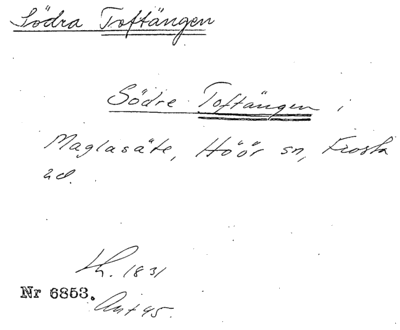 Södra Toftängen
Södre Toftängen i
Maglasäte, Höör sn, Frosta
hd.
Lh. 1831
Nr 6853.
Ant 45.